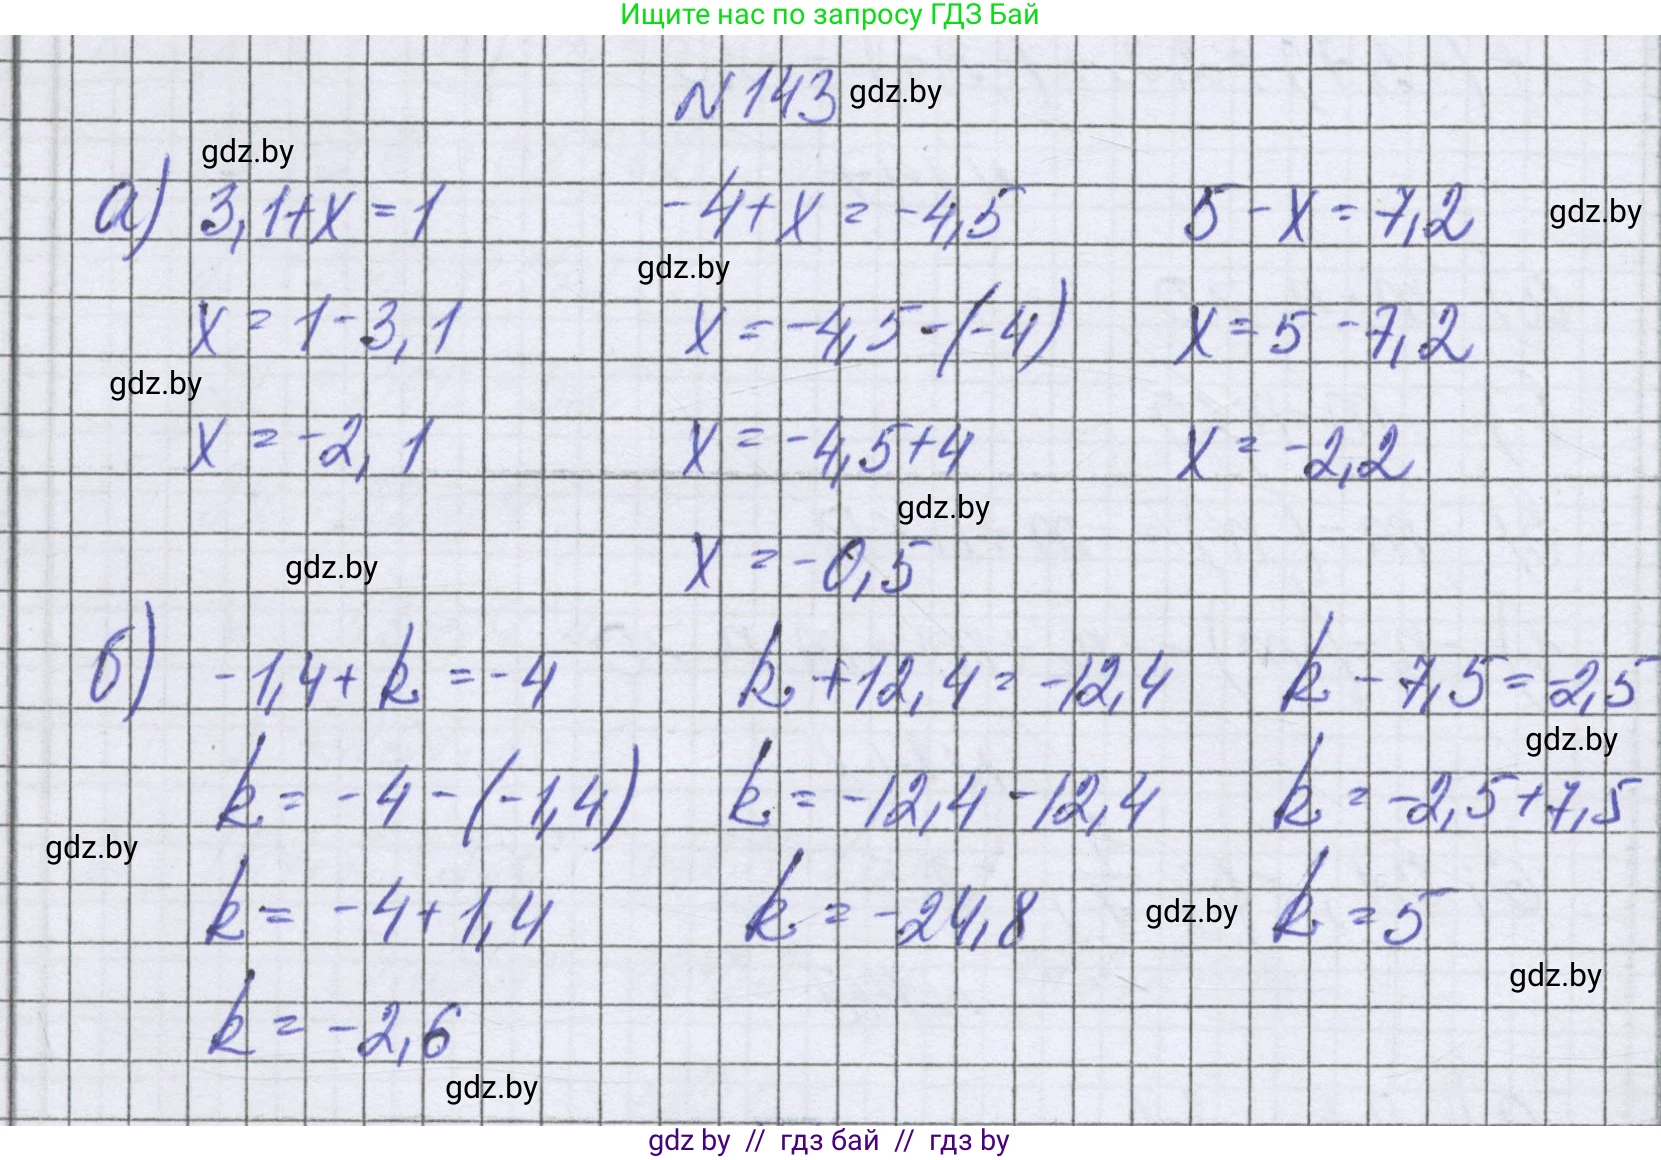 Ищите нас по запросу ГДЗ Бай
N 143 gdz.by
gdz.by
а) 3,1+x=1 -4+x=-4,5 5-x=7,2 gdz.by
gdz.by
x=1-3,1 x=-4,5-(-4) x=5-7,2
gdz.by
x=-2,1 x=-4,5+4 x=-2,2
gdz.by
gdz.by x=-0,5
б) -1,4+k=-4 k+12,4=-12,4 k-7,5=-2,5
gdz.by
k=-4-(-1,4) k=-12,4-12,4 k=-2,5+7,5
gdz.by
k=-4+1,4 k=-24,8 gdz.by k=5
gdz.by
k=-2,6
gdz.by
gdz by // гдз бай // гдз by